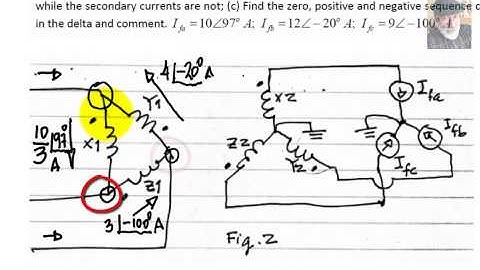 while the secondary currents are not; (c) Find the zero, positive and negative sequence c
in the delta and comment. I_fa = 10∠97° A; I_fb = 12∠-20° A; I_fc = 9∠-100° A
4∠-20° A
Y1
10/3 ∠97° A
X1
Z1
3∠-100° A
XZ
ZZ
YZ
Ifa
Ifb
Ifc
Fig.2